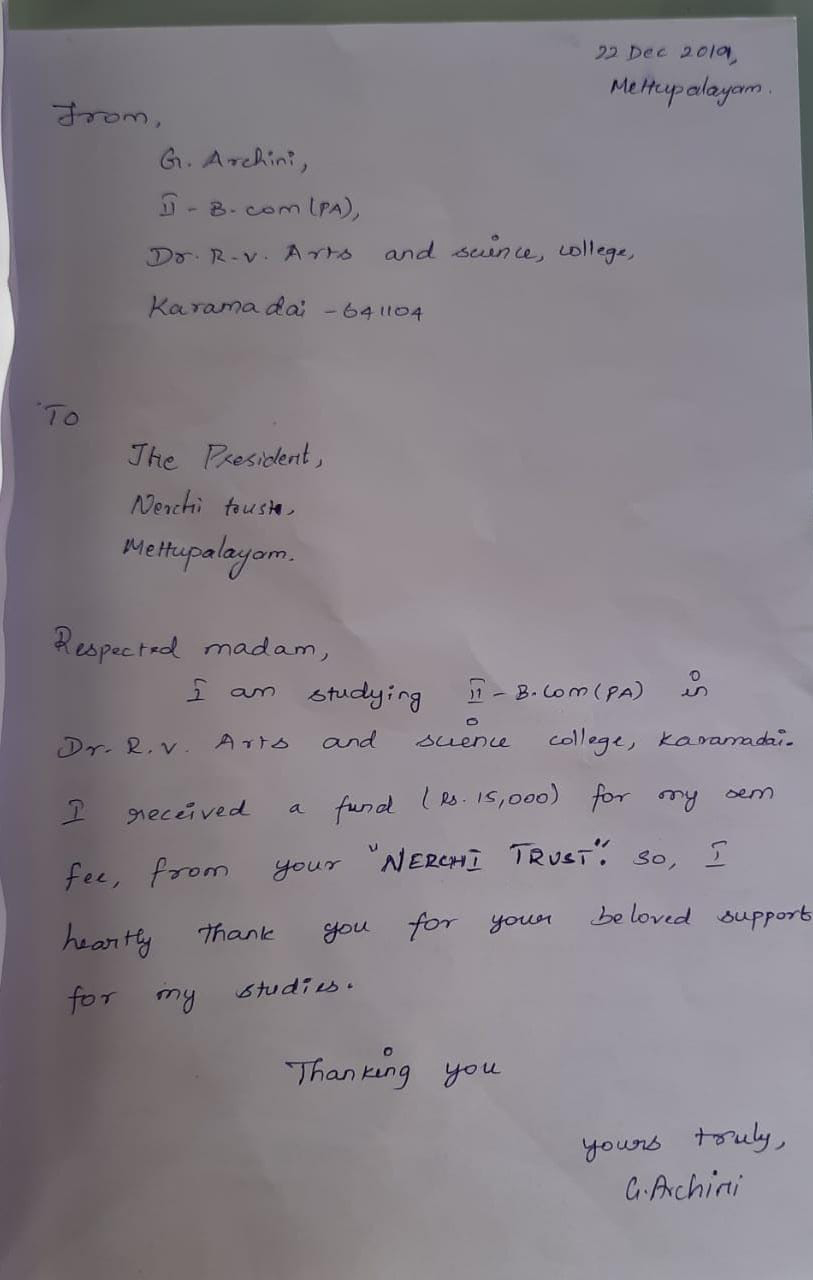 22 Dec 2019,
Mettupalayam.
From,
G. Archini,
II - B. com (PA),
Dr. R.V. Arts and science, college,
Karamadai - 641104
To
The President,
Nerchi trust,
Mettupalayam.
Respected madam,
I am studying II - B.Com (PA) in
Dr. R.V. Arts and science college, Karamadai.
I received a fund (Rs. 15,000) for my sem
fee, from your "NERCHI TRUST". So, I
heartly thank you for your beloved support
for my studies.
Thanking you
yours truly,
G.Archini